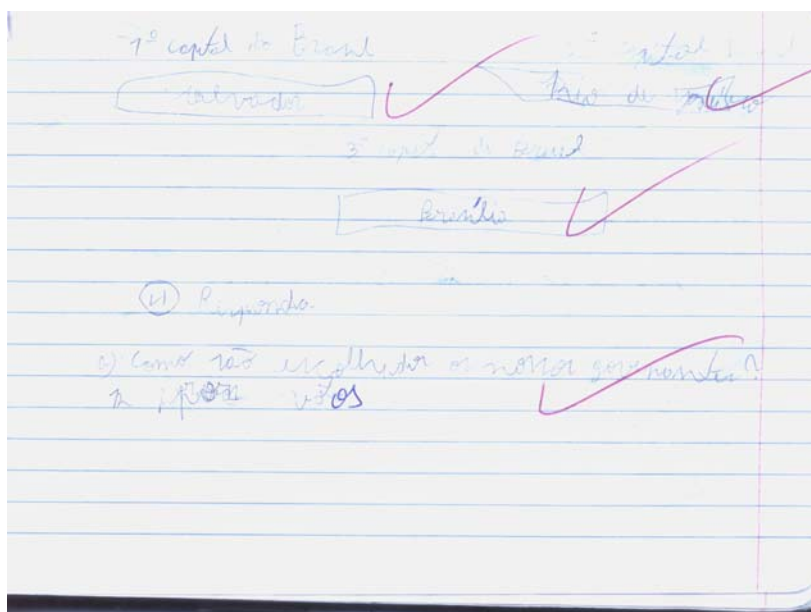 1º capital do Brasil
Salvador
Rio de Janeiro
3º capital do Brasil
Brasília
4) Responda
a) Como são escolhidos os nossos governantes?
R por